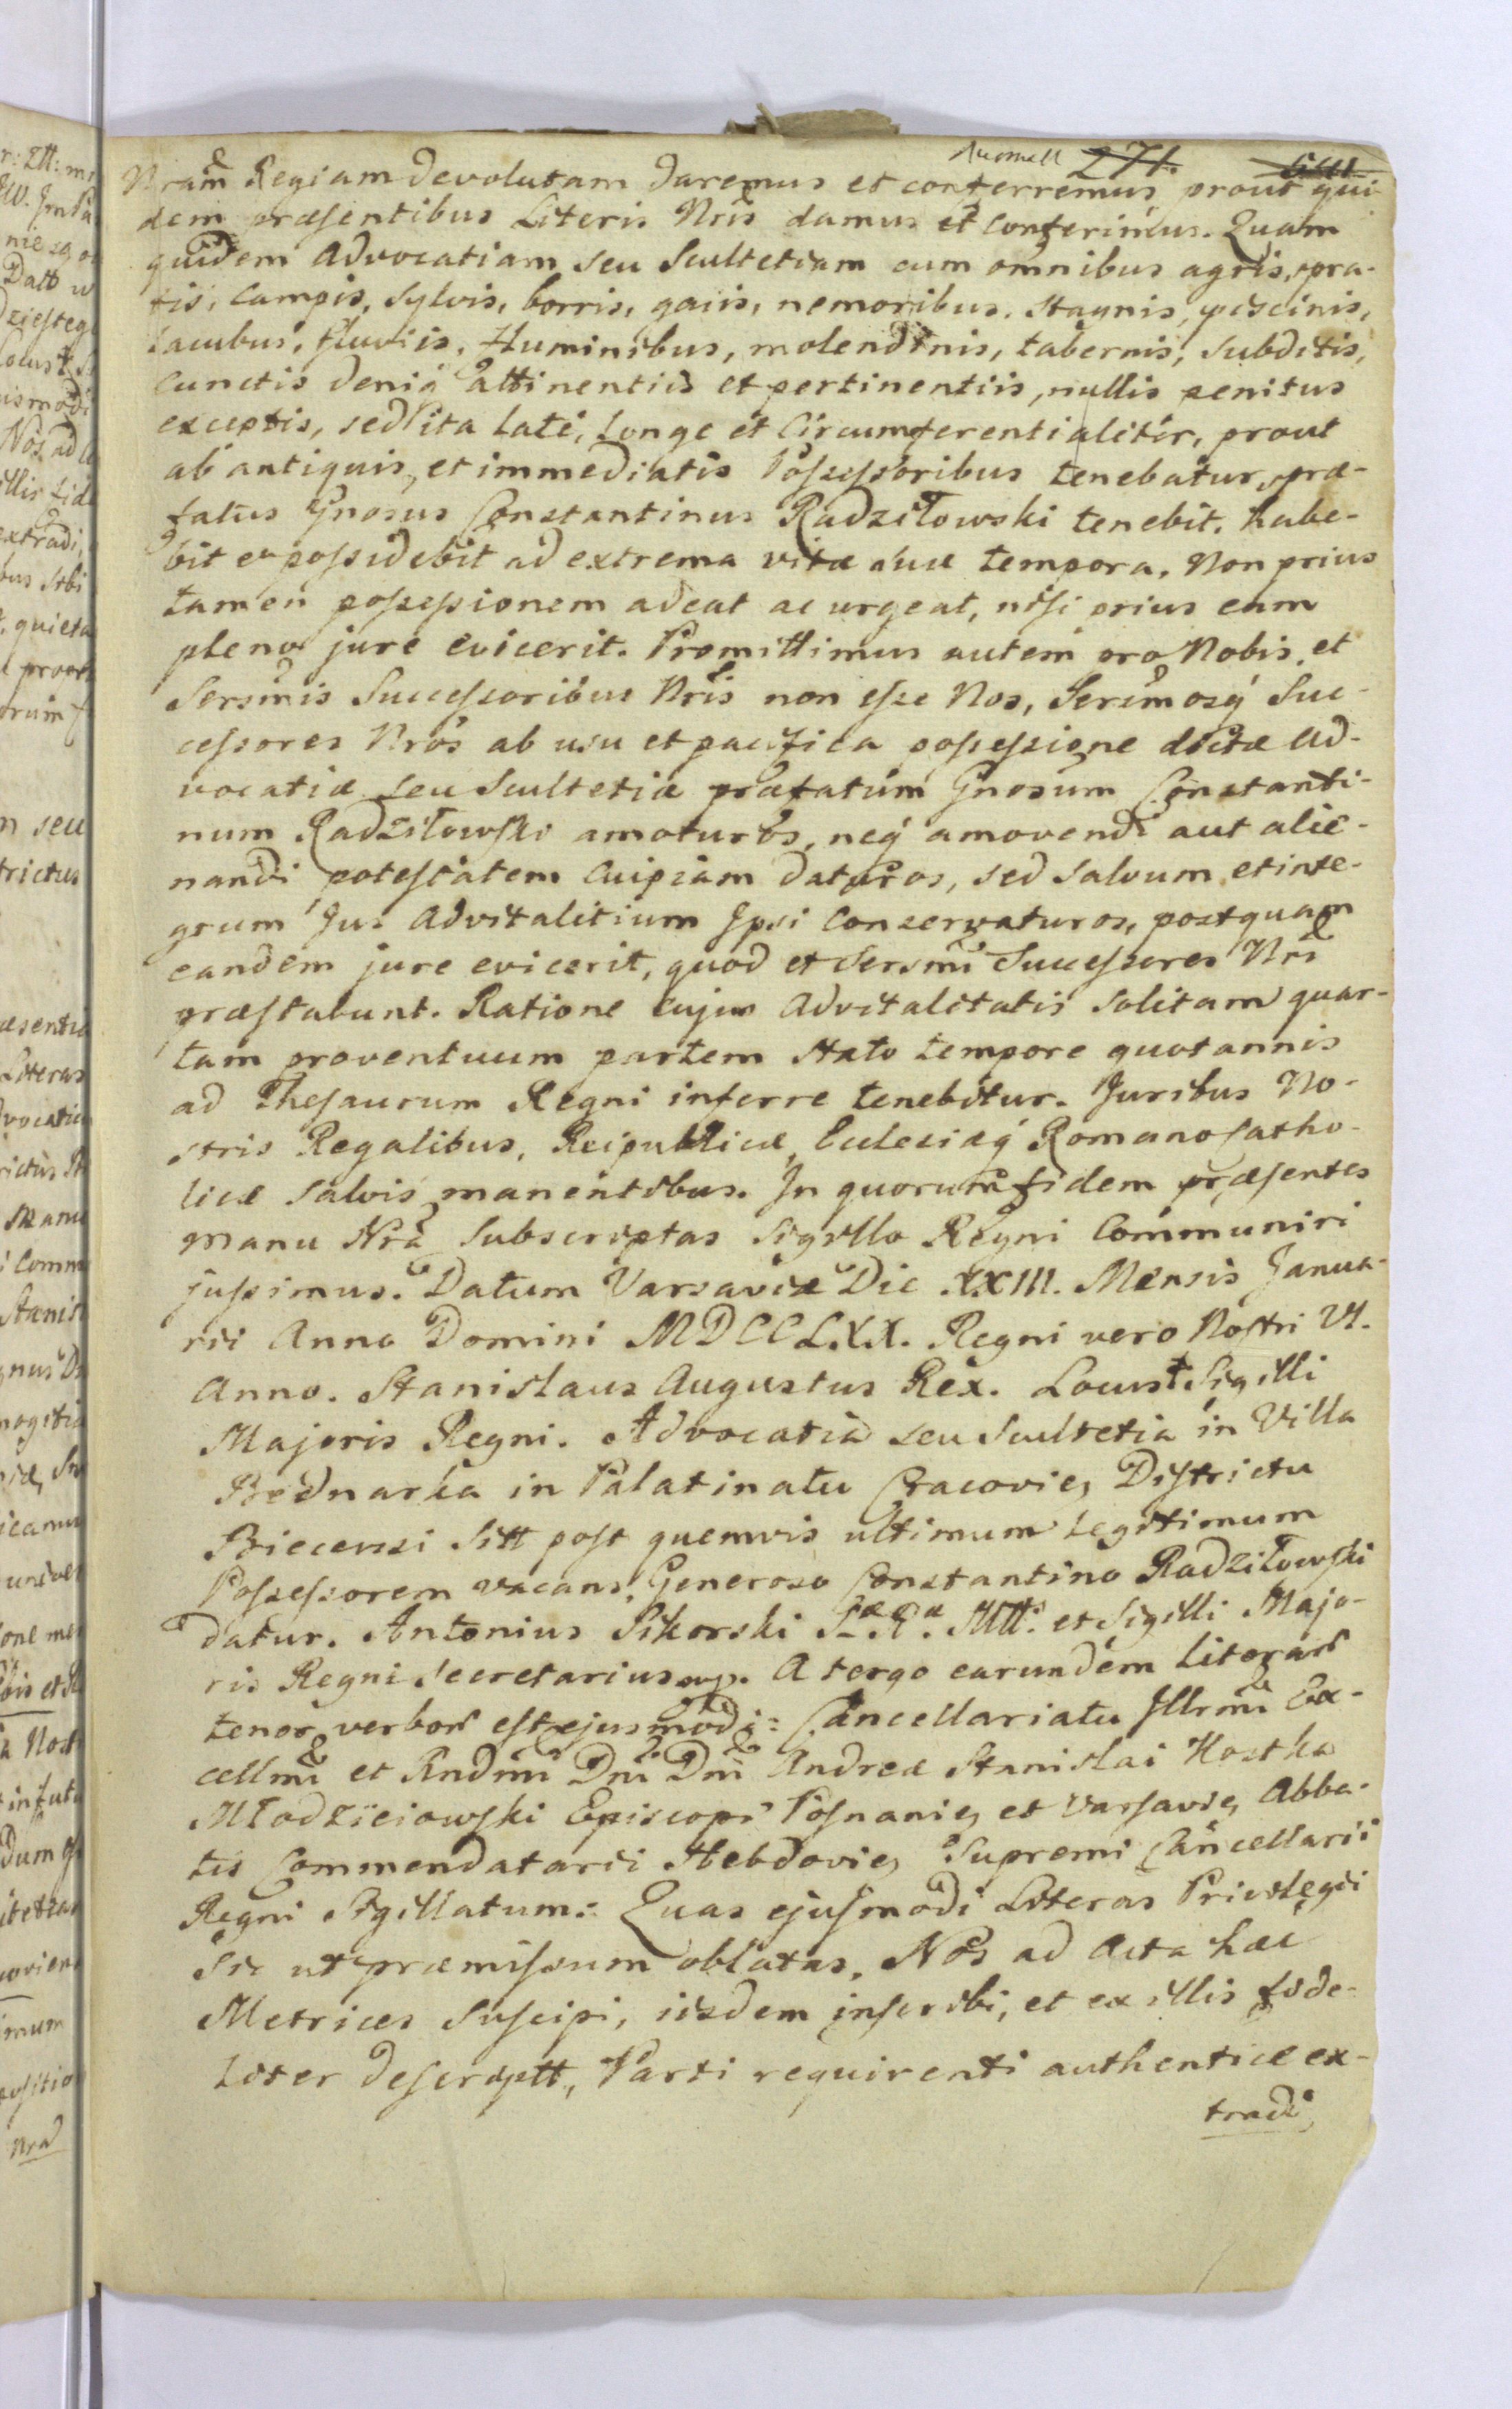 271.
Nram Regiam devolutam daremus et conferremus, prout qui-
dem præsentibus Literis Nris damus et conferimus. Quam
quidem Advocatiam seu Scultetiam cum omnibus agris, pra-
tis, campis, sylvis, borris, gaiis, nemoribus, stagnis, piscinis,
lacubus, fluviis, fluminibus, molendinis, tabernis, subditis,
cunctis deniq attinentiis et pertinentiis, nullis penitus
exceptis, sed ita late, longe et circumferentialiter, prout
ab antiquis, et immediatis Possessoribus tenebatur, præ-
fatus Gnosus Constantinus Radziłowski tenebit, habe-
bit et possidebit ad extrema vitæ suæ tempora. Non prius
tamen possessionem adeat ac urgeat, nisi prius eam
pleno jure evicerit. Promittimus autem pro Nobis, et
Sersmis Successoribus Nris non esse Nos, Sersmosq Suc-
cessores Nros ab usu et pacifica possessione dictæ Ad-
vocatiæ seu Scultetiæ præfatum Gnosum Constanti-
num Radziłowski amoturos, neq amovendi aut alie-
nandi potestatem cuipiam daturos, sed salvum et inte-
grum Jus Advitalitium Ipsi conservaturos, postquam
eandem jure evicerit, quod et Sersmi Successores Nri
præstabunt. Ratione cujus Advitalitatis solitam quar-
tam proventuum partem stato tempore quotannis
ad Thesaurum Regni inferre tenebitur. Juribus No-
stris Regalibus, Reipublicæ, Ecclesiæq Romano Catho-
licæ salvis manentibus. In quorum fidem præsentes
manu Nra subscriptas Sigillo Regni communiri
jussimus. Datum Varsaviæ Die XXIII. Mensis Janua-
rii Anno Domini MDCCLXX. Regni vero Nostri VI.
Anno. Stanislaus Augustus Rex. Locus Sigilli
Majoris Regni. Advocatia seu Scultetia in Villa
Bednarka in Palatinatu Cracovię, Districtu
Biecensi Sitt post quemvis ultimum legitimum
Possessorem vacans, Generoso Constantino Radziłowski
datur. Antonius Sikorski S. R. Mttis et Sigilli Majo-
ris Regni Secretarius mp. A tergo earundem Literar
tenor verbor est ejusmodi: Cancellariatu Illrmi Ex-
cellmi et Rndmi Dni Dni Andreæ Stanislai Kostka
Młodzieiowski Episcopi Posnanię, et Varsavię, Abba-
tis Commendatarii Hebdovię, Supremi Cancellarii
Regni Sigillatum: Quas ejusmodi Literas Privilegii
sic ut præmissum oblatas, Nos ad Acta hæc
Metrices suscipi, iisdem inscribi, et ex illis fide-
liter descriptt, Parti requirenti authentice ex-
tradi,